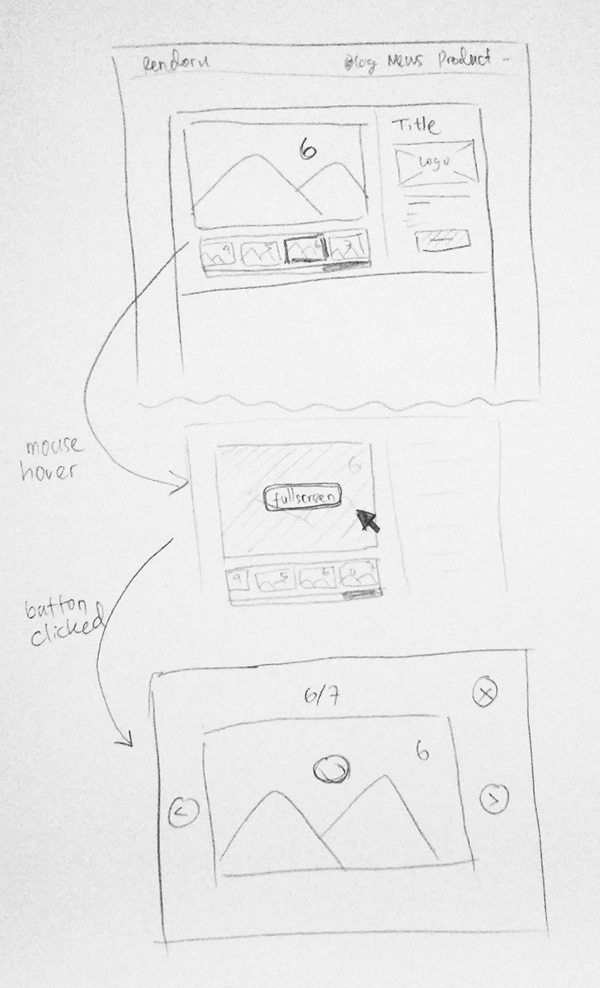 Rendoru
Blog News Product
Title
6
Logo
4 5 6 7
mouse
hover
6
fullscreen
4 5 6 7
button
clicked
6/7
X
6
< >